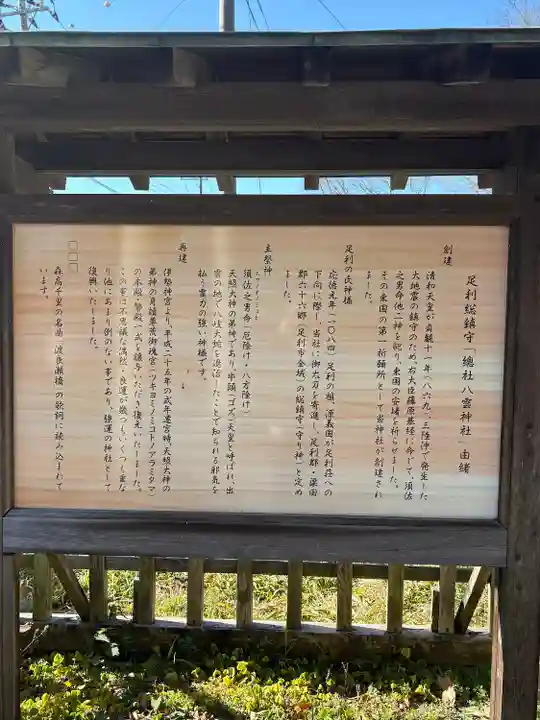 足利総鎮守「總社八雲神社」由緒
創建
清和天皇が貞観十一年(八六九)、三陸沖で発生した
大地震の鎮守のため、右大臣藤原基経に命じて、須佐
之男命他二神を祀り、東国の安堵を祈らせました。
その東国の第一祈願所として当神社が創建され
ました。
足利の氏神様
応徳元年(一〇八四)、足利の祖、源義国が足利荘への
下向に際し、当社に御太刀を寄進し、足利郡・梁田
郡六十六郷(足利市全域)の総鎮守(守り神)と定め
ました。
主祭神
須佐之男命(厄除け・八方除け)
天照大神の弟神であり、牛頭(ゴズ)天皇と呼ばれ、出
雲の地で八岐大蛇を退治したことで知られる邪気を
払う霊力の強い神様です。
再建
伊勢神宮より、平成二十五年の式年遷宮時、天照大神の
弟神の月読尊荒御魂宮(ツキヨミノミコトノアラミタマ)
の本殿・祭殿一式を譲与いただき、建替えいたしました。
この事は不思議な偶然・良運が幾つもいくつも重な
り他にあまり例のない事であり、強運の神社として
復興いたしました。
□□□
森高千里の名曲「渡良瀬橋」の歌詞に読み込まれて
います。